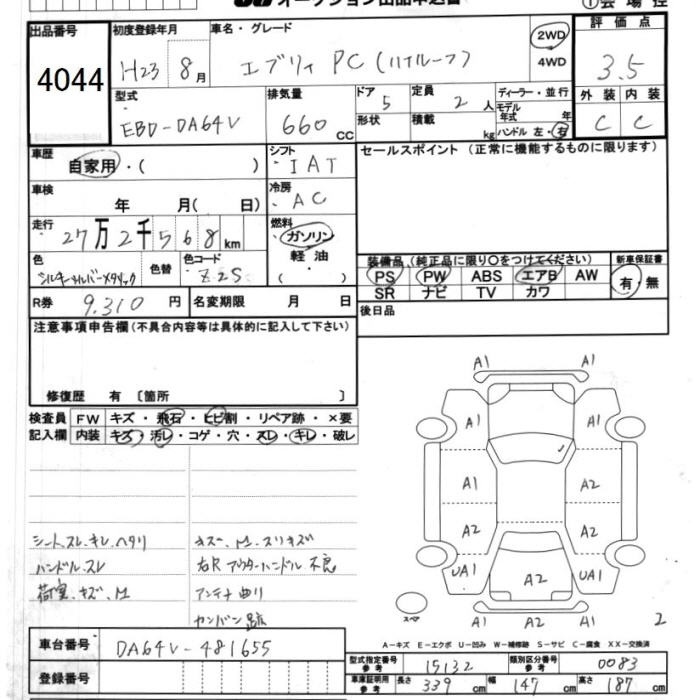 オークション出品申込書
出品番号
4044
初度登録年月
H23 8月
車名・グレード
エブリィ PC (ハイルーフ)
2WD
4WD
評価点
3.5
外装 内装
C C
型式
EBD-DA64V
排気量
660 CC
ドア 5
形状
定員 2 人
積載 kg
ディーラー・並行
モデル年式 年
ハンドル 左・右
車歴
自家用・( )
シフト
IAT
セールスポイント (正常に機能するものに限ります)
車検
年 月( 日)
冷房
AC
走行
27万2千568km
燃料
ガソリン
軽油
( )
色
シルキーシルバーメタリック
色替
色コード
Z2S
装備品 (純正品に限り○をつけてください)
PS PW ABS エアB AW
SR ナビ TV カワ
新車保証書
有・無
R券 9.310 円
名変期限 月 日
後日品
注意事項申告欄(不具合内容等は具体的に記入して下さい)
修復歴 有 〔箇所 〕
検査員記入欄
FW キズ・飛石・ヒビ割・リペア跡・×要
内装 キズ・汚レ・コゲ・穴・スレ・キレ・破レ
シート.スレ.キレ.ヘタリ
ハンドル.スレ
荷室.キズ.M
キズー.M.スリキズ
右R アウターハンドル 不良
アンテナ 曲リ
カンバン 跡
A1 A1
A1 A1
A1 A2
A2 A2
UA1 A2 UA1
A1 A2 A1
スペア
2
A-キズ E-エクボ U-凹み W-補修跡 S-サビ C-腐食 XX-交換済
車台番号 DA64V-481655
登録番号
型式指定番号 参考 15132
類別区分番号 参考 0083
車庫証明用 参考 長さ 339 cm 幅 147 cm 高さ 187 cm